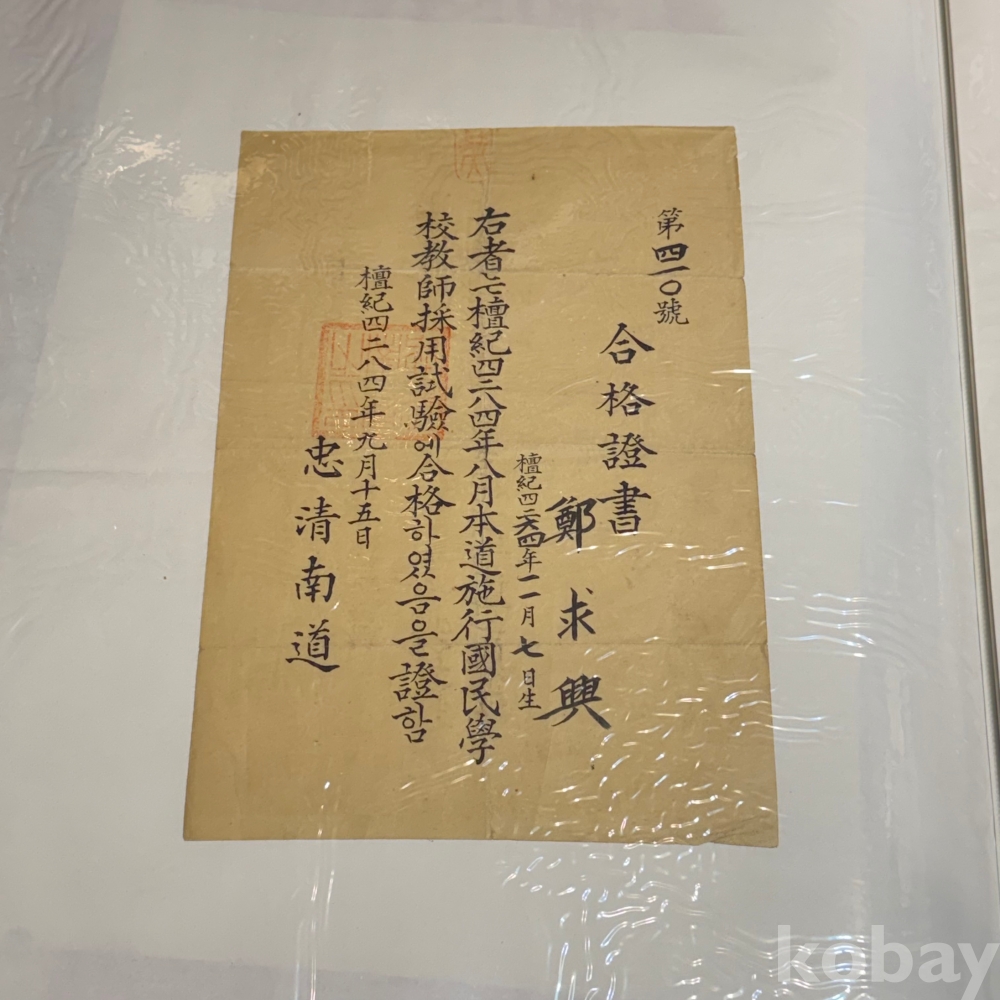 第四一〇號
合格證書
鄭求興
檀紀四二六四年二月七日生
右者는檀紀四二八四年八月本道施行國民學
校教師採用試驗에合格하였음을證함
檀紀四二八四年九月十五日
忠清南道
kobay